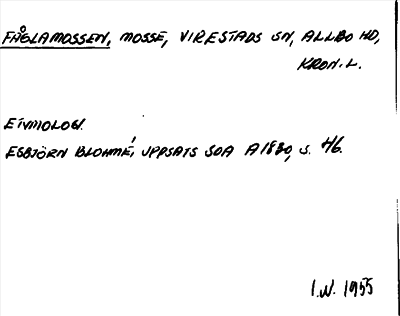 FÅGLAMOSSEN, MOSSE, VIRESTADS SN, ALLBO HD,
KRON. L.
ETYMOLOGI.
ESBJÖRN BLOHMÉ, UPPSATS SOA A1830, S. 46.
I.W. 1955